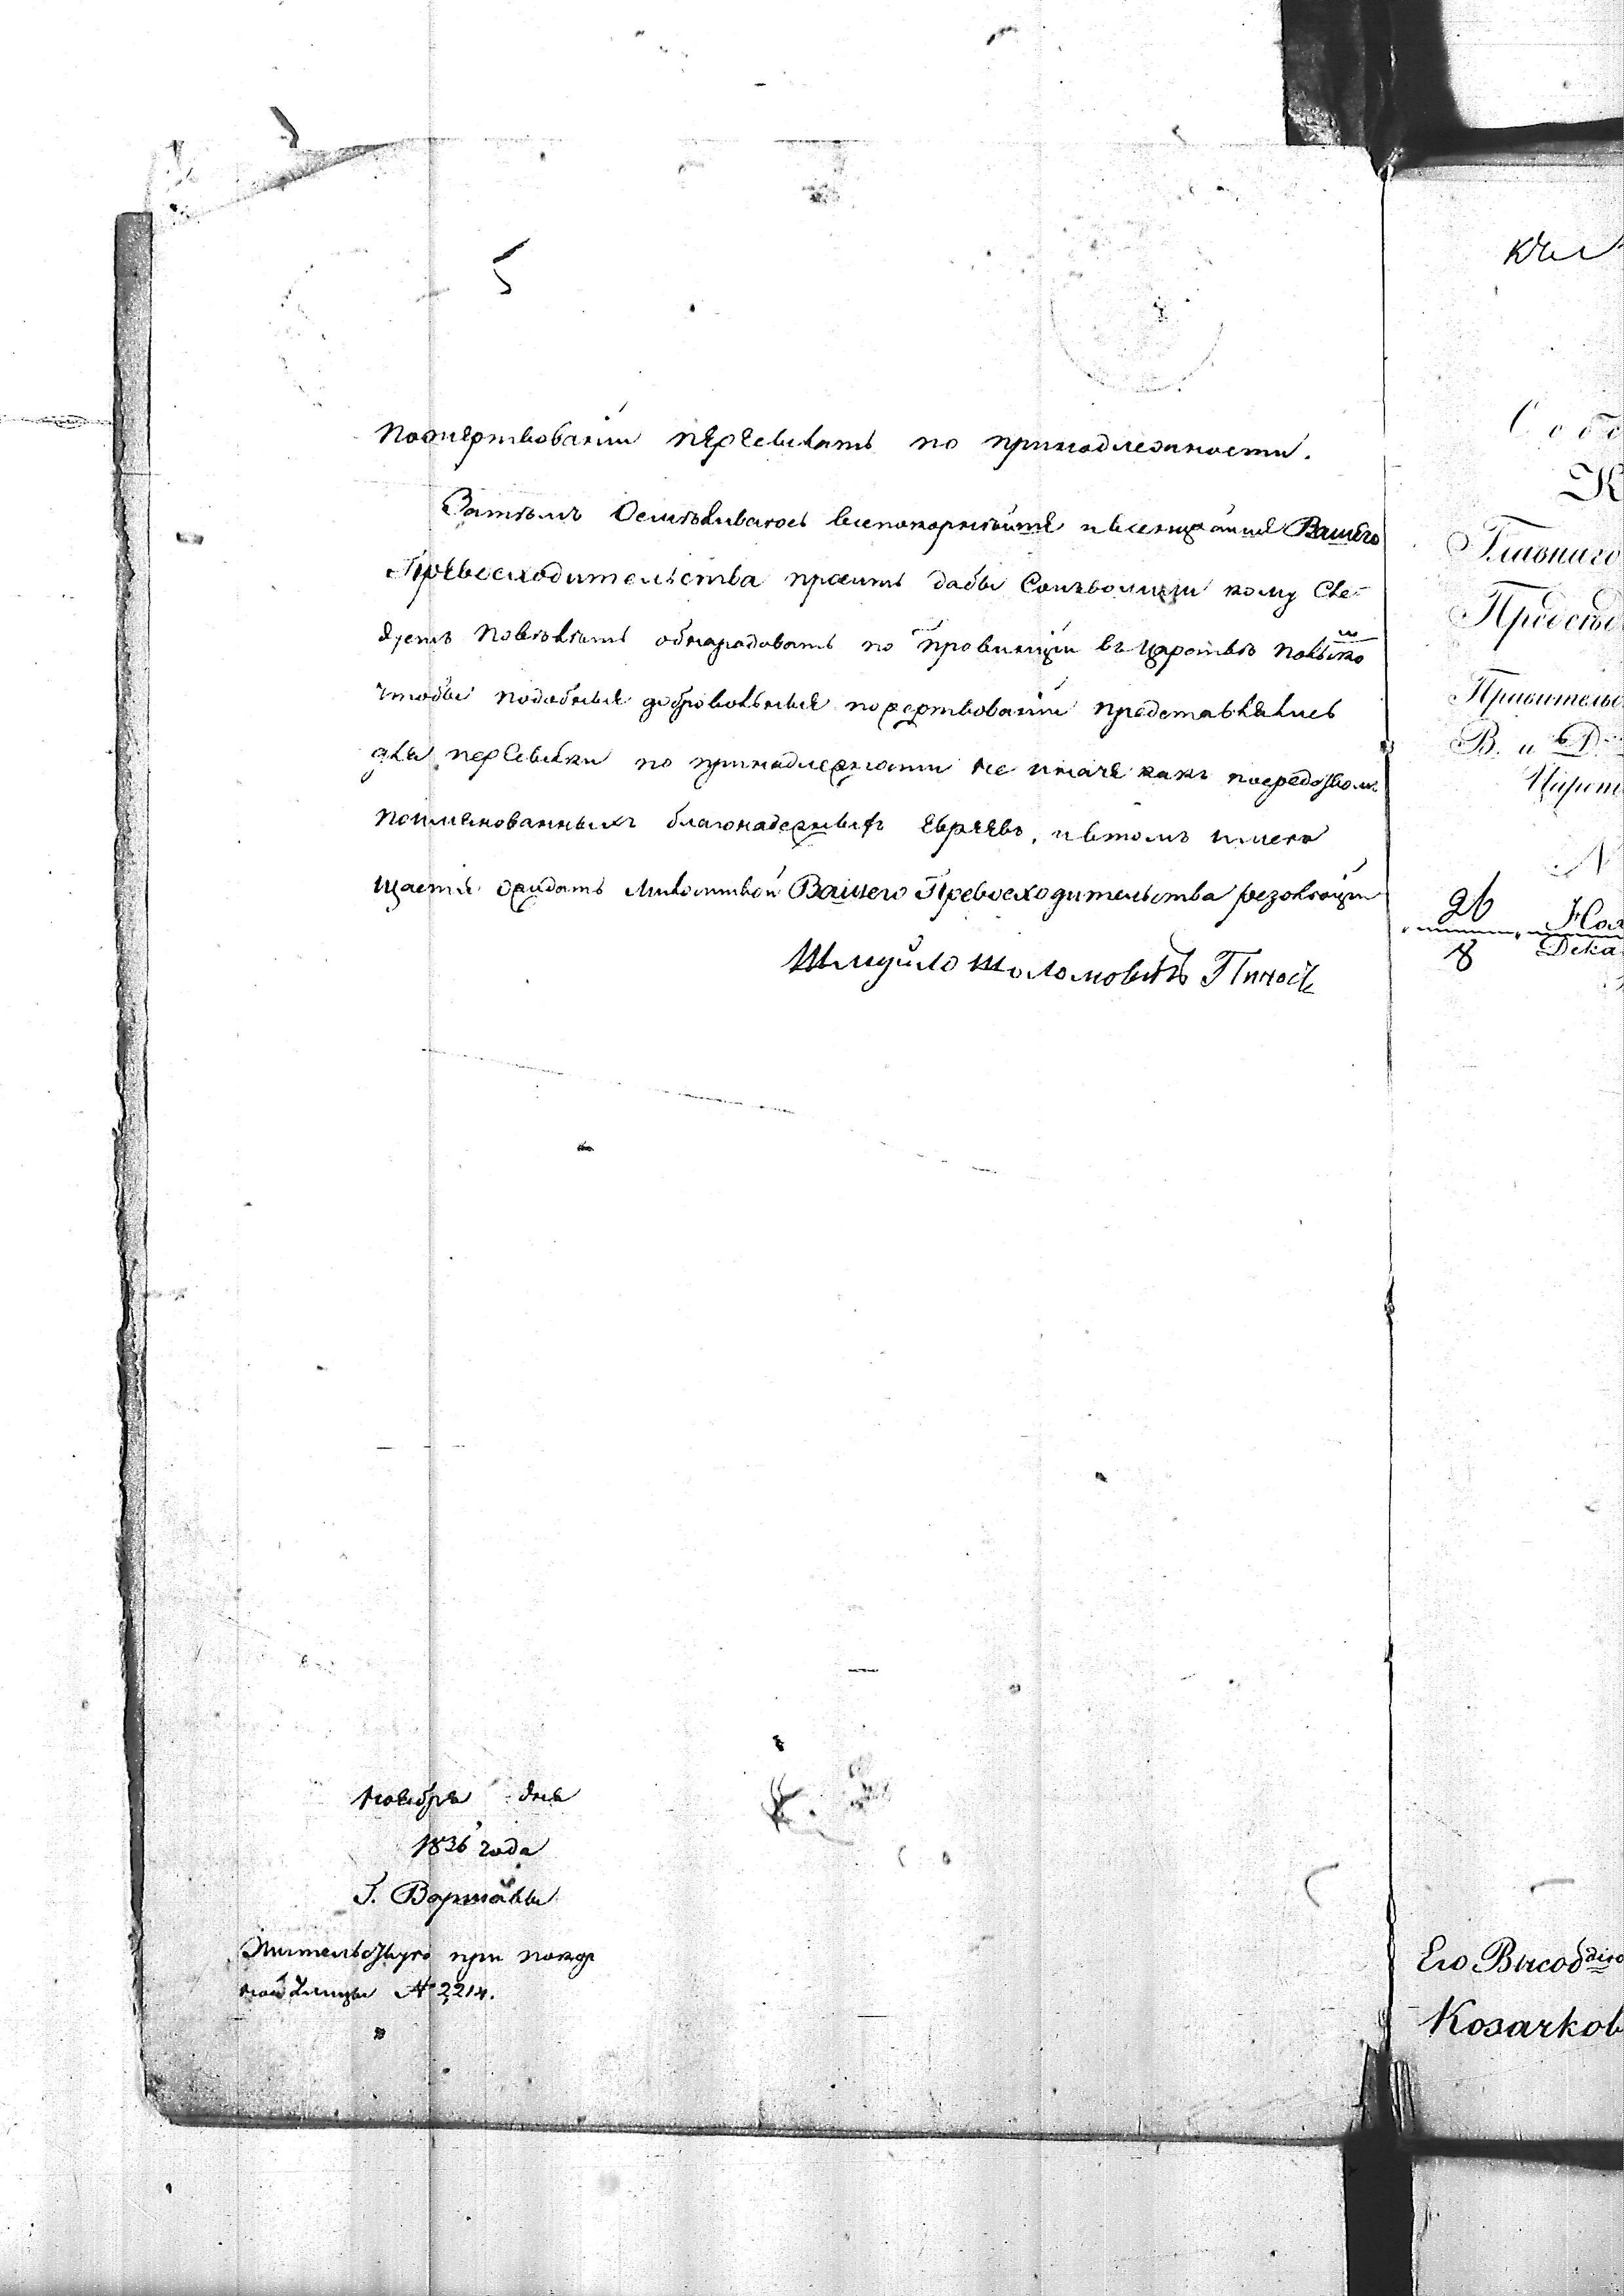 5
пожертвованіи пересылать по принадлежности.
Затѣмъ Осмѣливаюсь всепокорнѣйше Вашего
Превосходительства просить дабы Соизволили кому Слѣ-
дуетъ повелѣть обнародовать по провинціи въ Царствѣ польско
чтобы подобные добровольные пожертвованіи представлялись
для пересылки по принадлежности не иначе какъ посредством
поименованныхъ благонадежныхъ Евреевъ, и въ томъ имею
щастіе ожидать Милостивой Вашего Превосходительства резолюціи
Шмуйло Шоломовичъ
ноября дня
1836 года
Г. Варшавы
Жительствую при
улицы № 2214.
Собс
К
Главнаго
Предсѣд
Правительс
В. и Д
Царст
N
26 Ноя
8 Дека
Его Высоб
Козачков